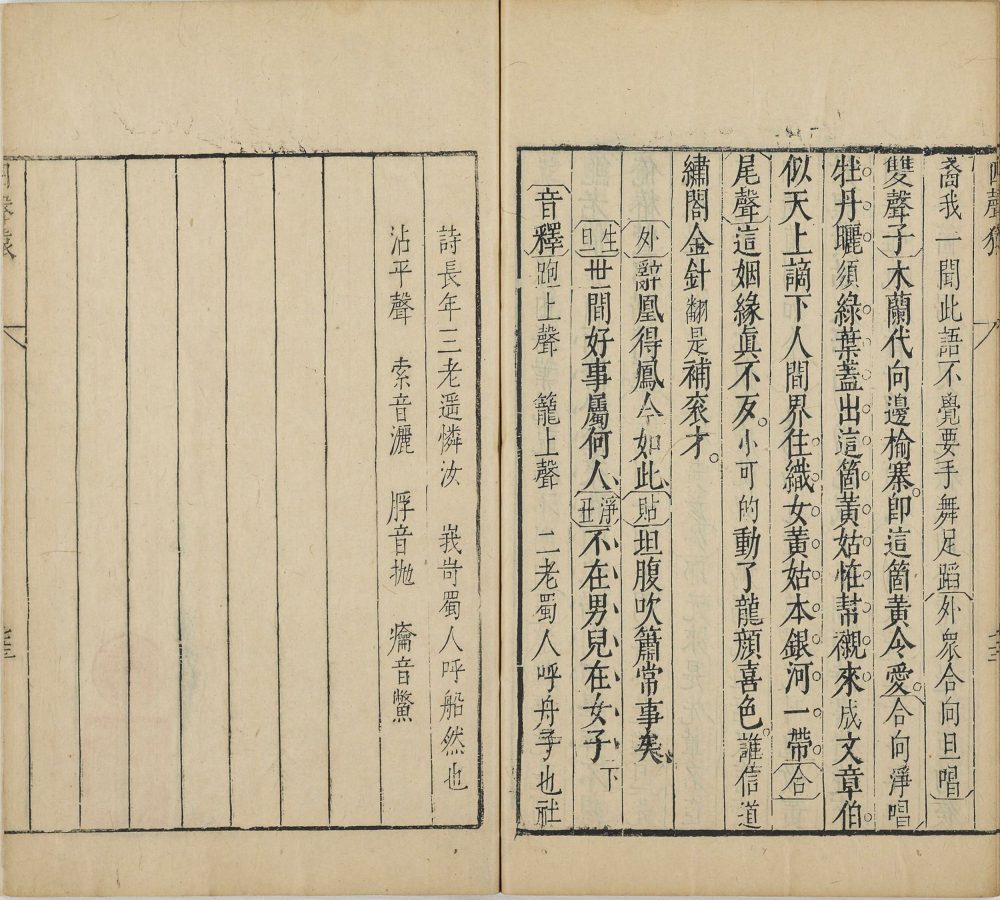 四聲猿
喬我一聞此語不覺要手舞足蹈外衆合向旦唱
雙聲子木蘭代向邊楡塞卽這箇黃令愛合向淨唱
牡丹曬須綠葉蓋出這箇黃姑恠幇襯來成文章伯
似天上謫下人間界住織女黃姑本銀河一帶合
尾聲這姻緣眞不歹小可的動了龍顔喜色誰信道
繡閣金針翻是補衮才
外辭凰得鳳今如此貼坦腹吹簫常事矣
生旦世間好事屬何人淨丑不在男兒在女子下
音釋跑上聲 籠上聲 二老蜀人呼舟子也社
詩長年三老遥憐汝 峩岢蜀人呼船然也
沾平聲 索音灑 脬音抛 癟音鱉
四聲猿